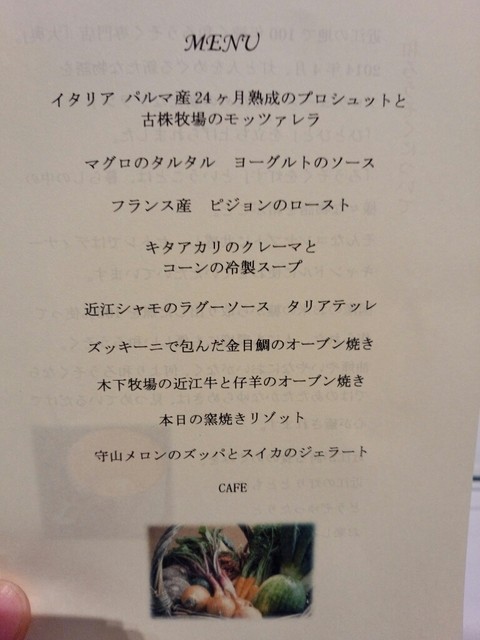 MENU
イタリア パルマ産24ヶ月熟成のプロシュットと
古株牧場のモッツァレラ
マグロのタルタル ヨーグルトのソース
フランス産 ピジョンのロースト
キタアカリのクレーマと
コーンの冷製スープ
近江シャモのラグーソース タリアテッレ
ズッキーニで包んだ金目鯛のオーブン焼き
木下牧場の近江牛と仔羊のオーブン焼き
本日の窯焼きリゾット
守山メロンのズッパとスイカのジェラート
CAFE